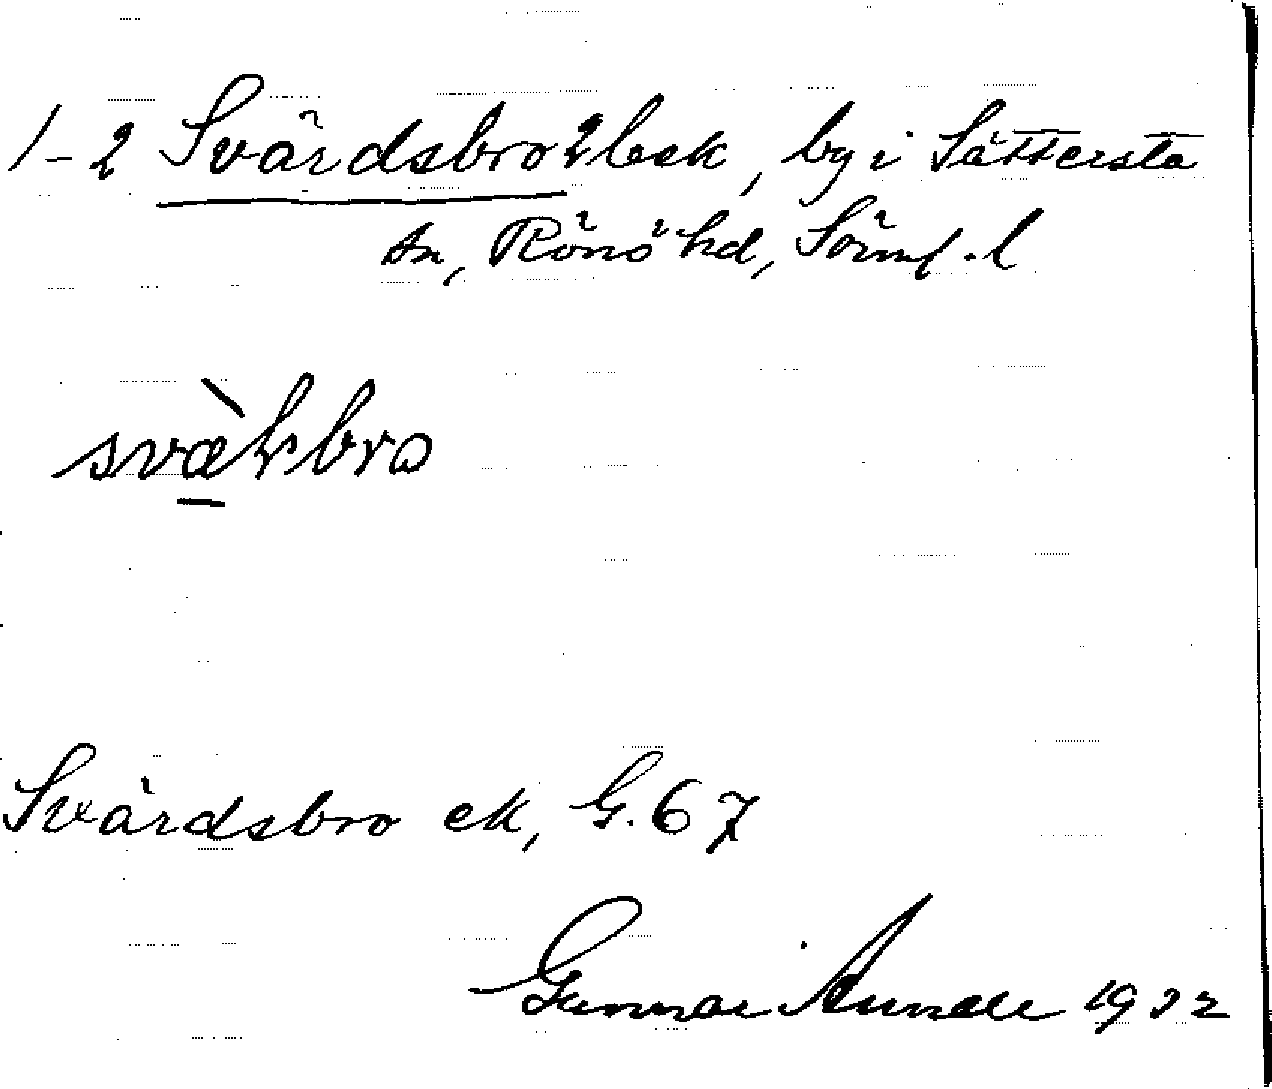 1-2 Svärdsbro 2 bek, by i Sättersta
sn, Rönö hd, Sörml. l
svæ̀rbro
Svärdsbro ek, G. 67
Gunnar 1932